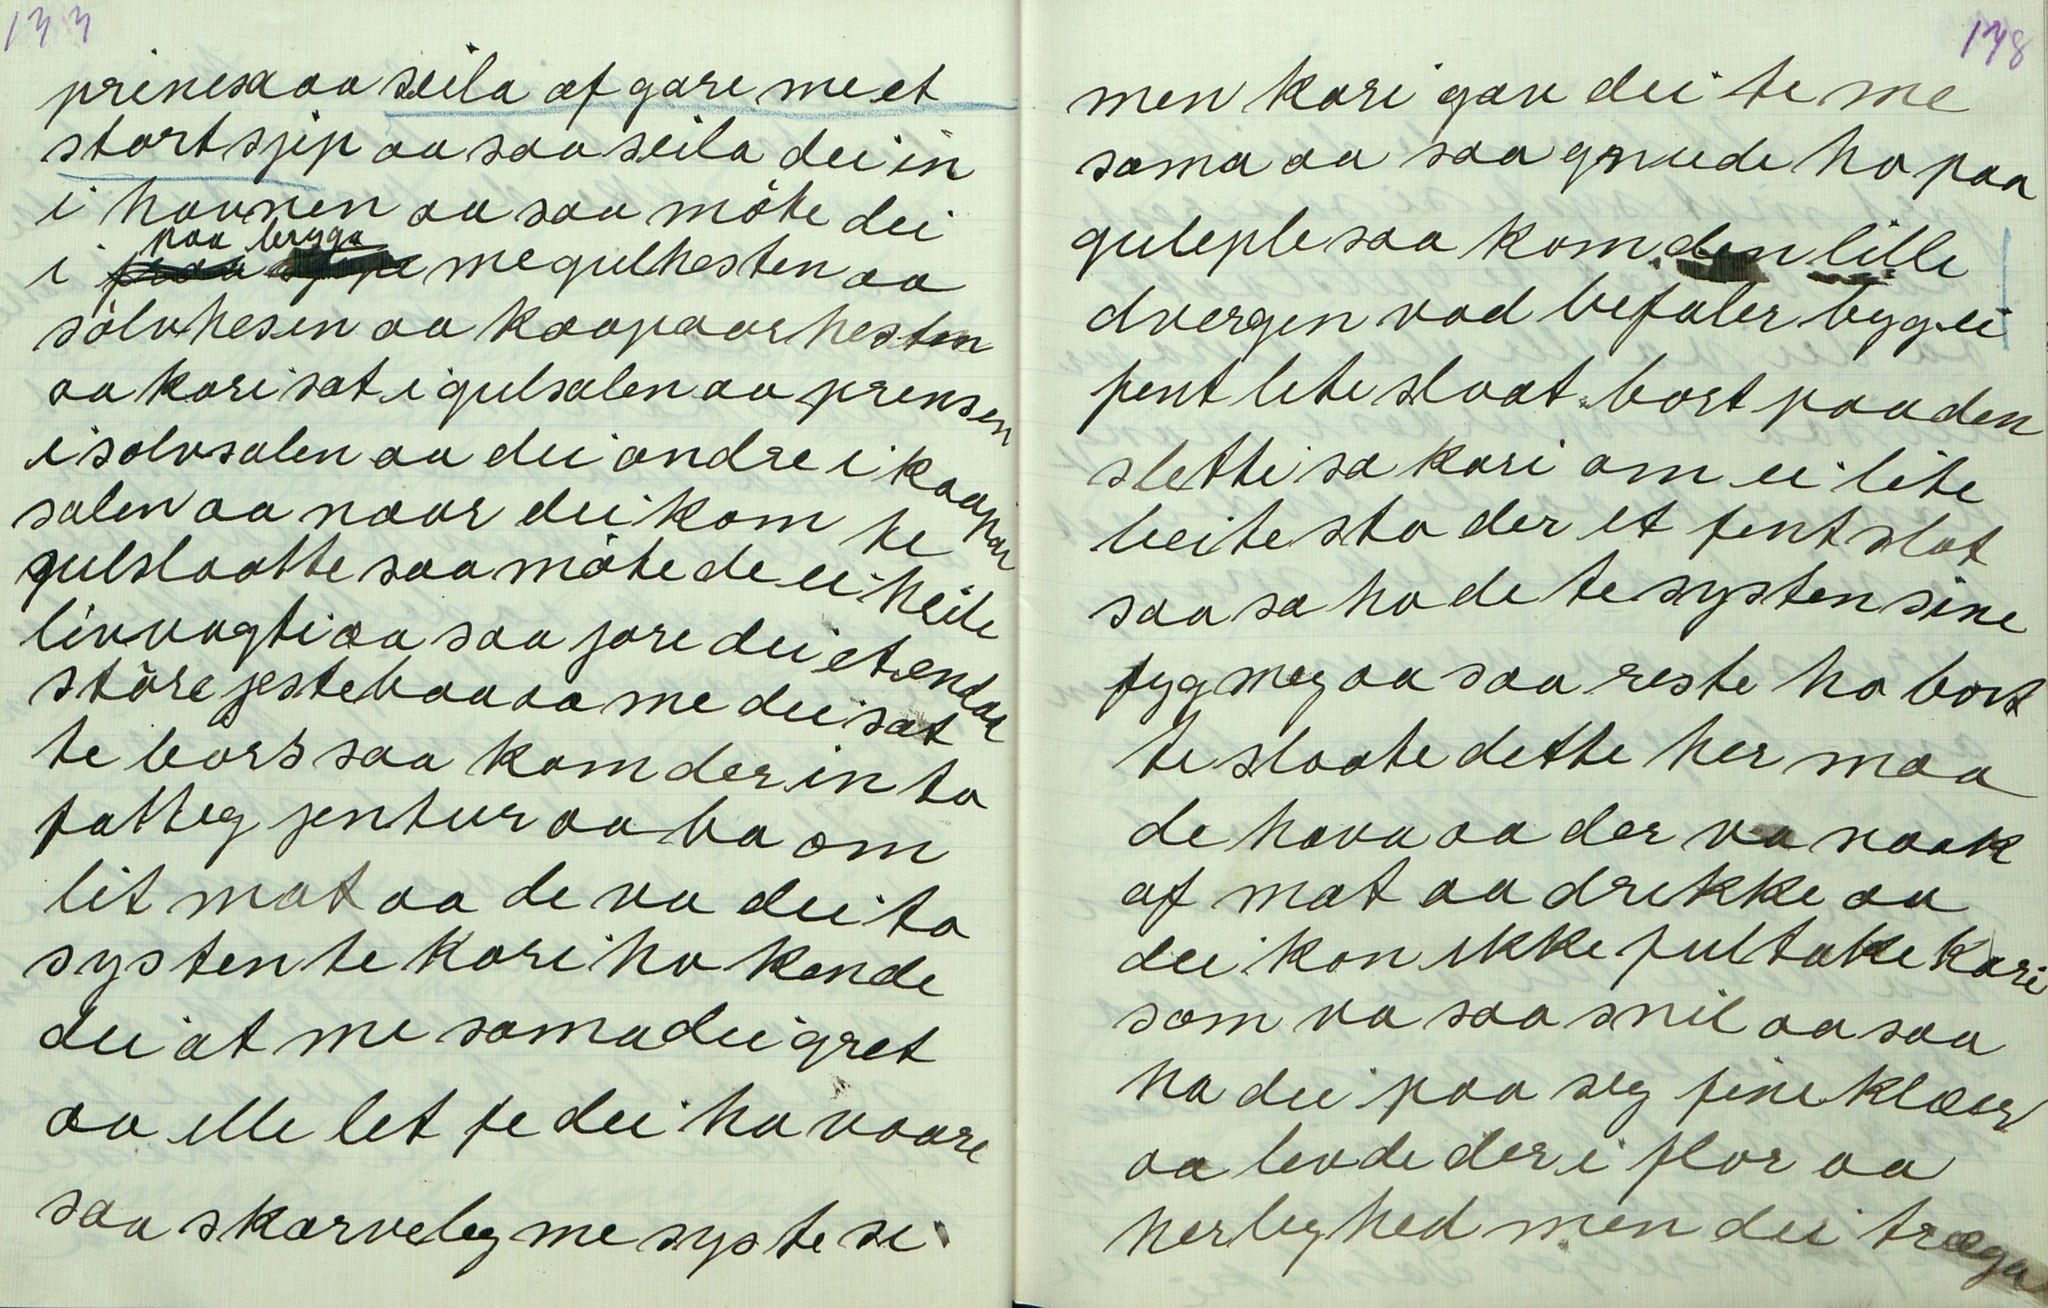 177
prinsesa aa seila af gare me et
stort sjip aa saa seila dei in
i havnen aa saa möte dei
paa bryga
i me gulhesten aa
sölvhesen aa kaapaarhesten
aa kari sat i gulsalen aa prensen
i solvsalen aa dei andre i kaapar
salen aa naar dei kom te
gulslaatte saa möte de ei heile
livvagti aa saa jore dei et endaa
störe jestebaa aa me dei sat
te bors saa kom der in to
fatteg jentur aa ba om
lit mat aa de va dei to
systen te kari ho kende
dei at me soma dei gret
aa ille let fe dei ha vaare
saa skarveleg me syste si
178
men kari gav dei te me
soma aa saa gnuede ho paa
guleple saa kom den lille
dvergen vad befaler byg ei
pent lite slaat bort paa den
slette sa kari om ei lite
beite sto der et fent slot
saa sa ho de te systen sine
fyg meg aa saa reste ho bort
te slaate dette her maa
de hava aa der va naak
af mat aa drikke aa
dei kon ikke fultakke kari
som va saa snil aa saa
ha dei paa seg fine klæer
aa levde der i flor aa
herleghed men dei træga